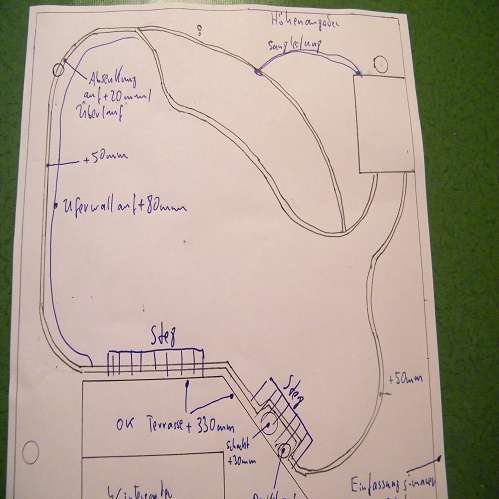 Höhenangaben
Saugleitung
Absenkung
auf +20mm/
Überlauf
+50mm
Uferwall auf +80mm
Steg
Steg
OK Terrasse +330mm
Schacht
+30mm
+50mm
Einfassung